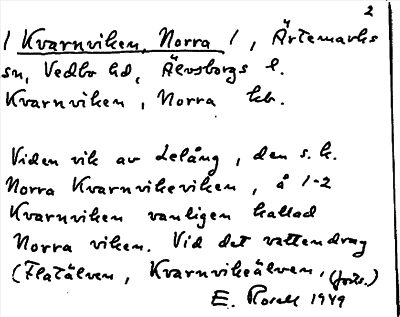 2
/ Kvarnviken, Norra /, Ärtemarks
sn, Vedbo hd, Älvsborgs l.
Kvarnviken, Norra kb.
Viden vik av Lelång, den s. k.
Norra Kvarnvikeviken, å 1-2
Kvarnviken vanligen kallad
Norra viken. Vid det vattendrag
(Flatälven, Kvarnvikeälven, (forts.)
E. Rosell 1949